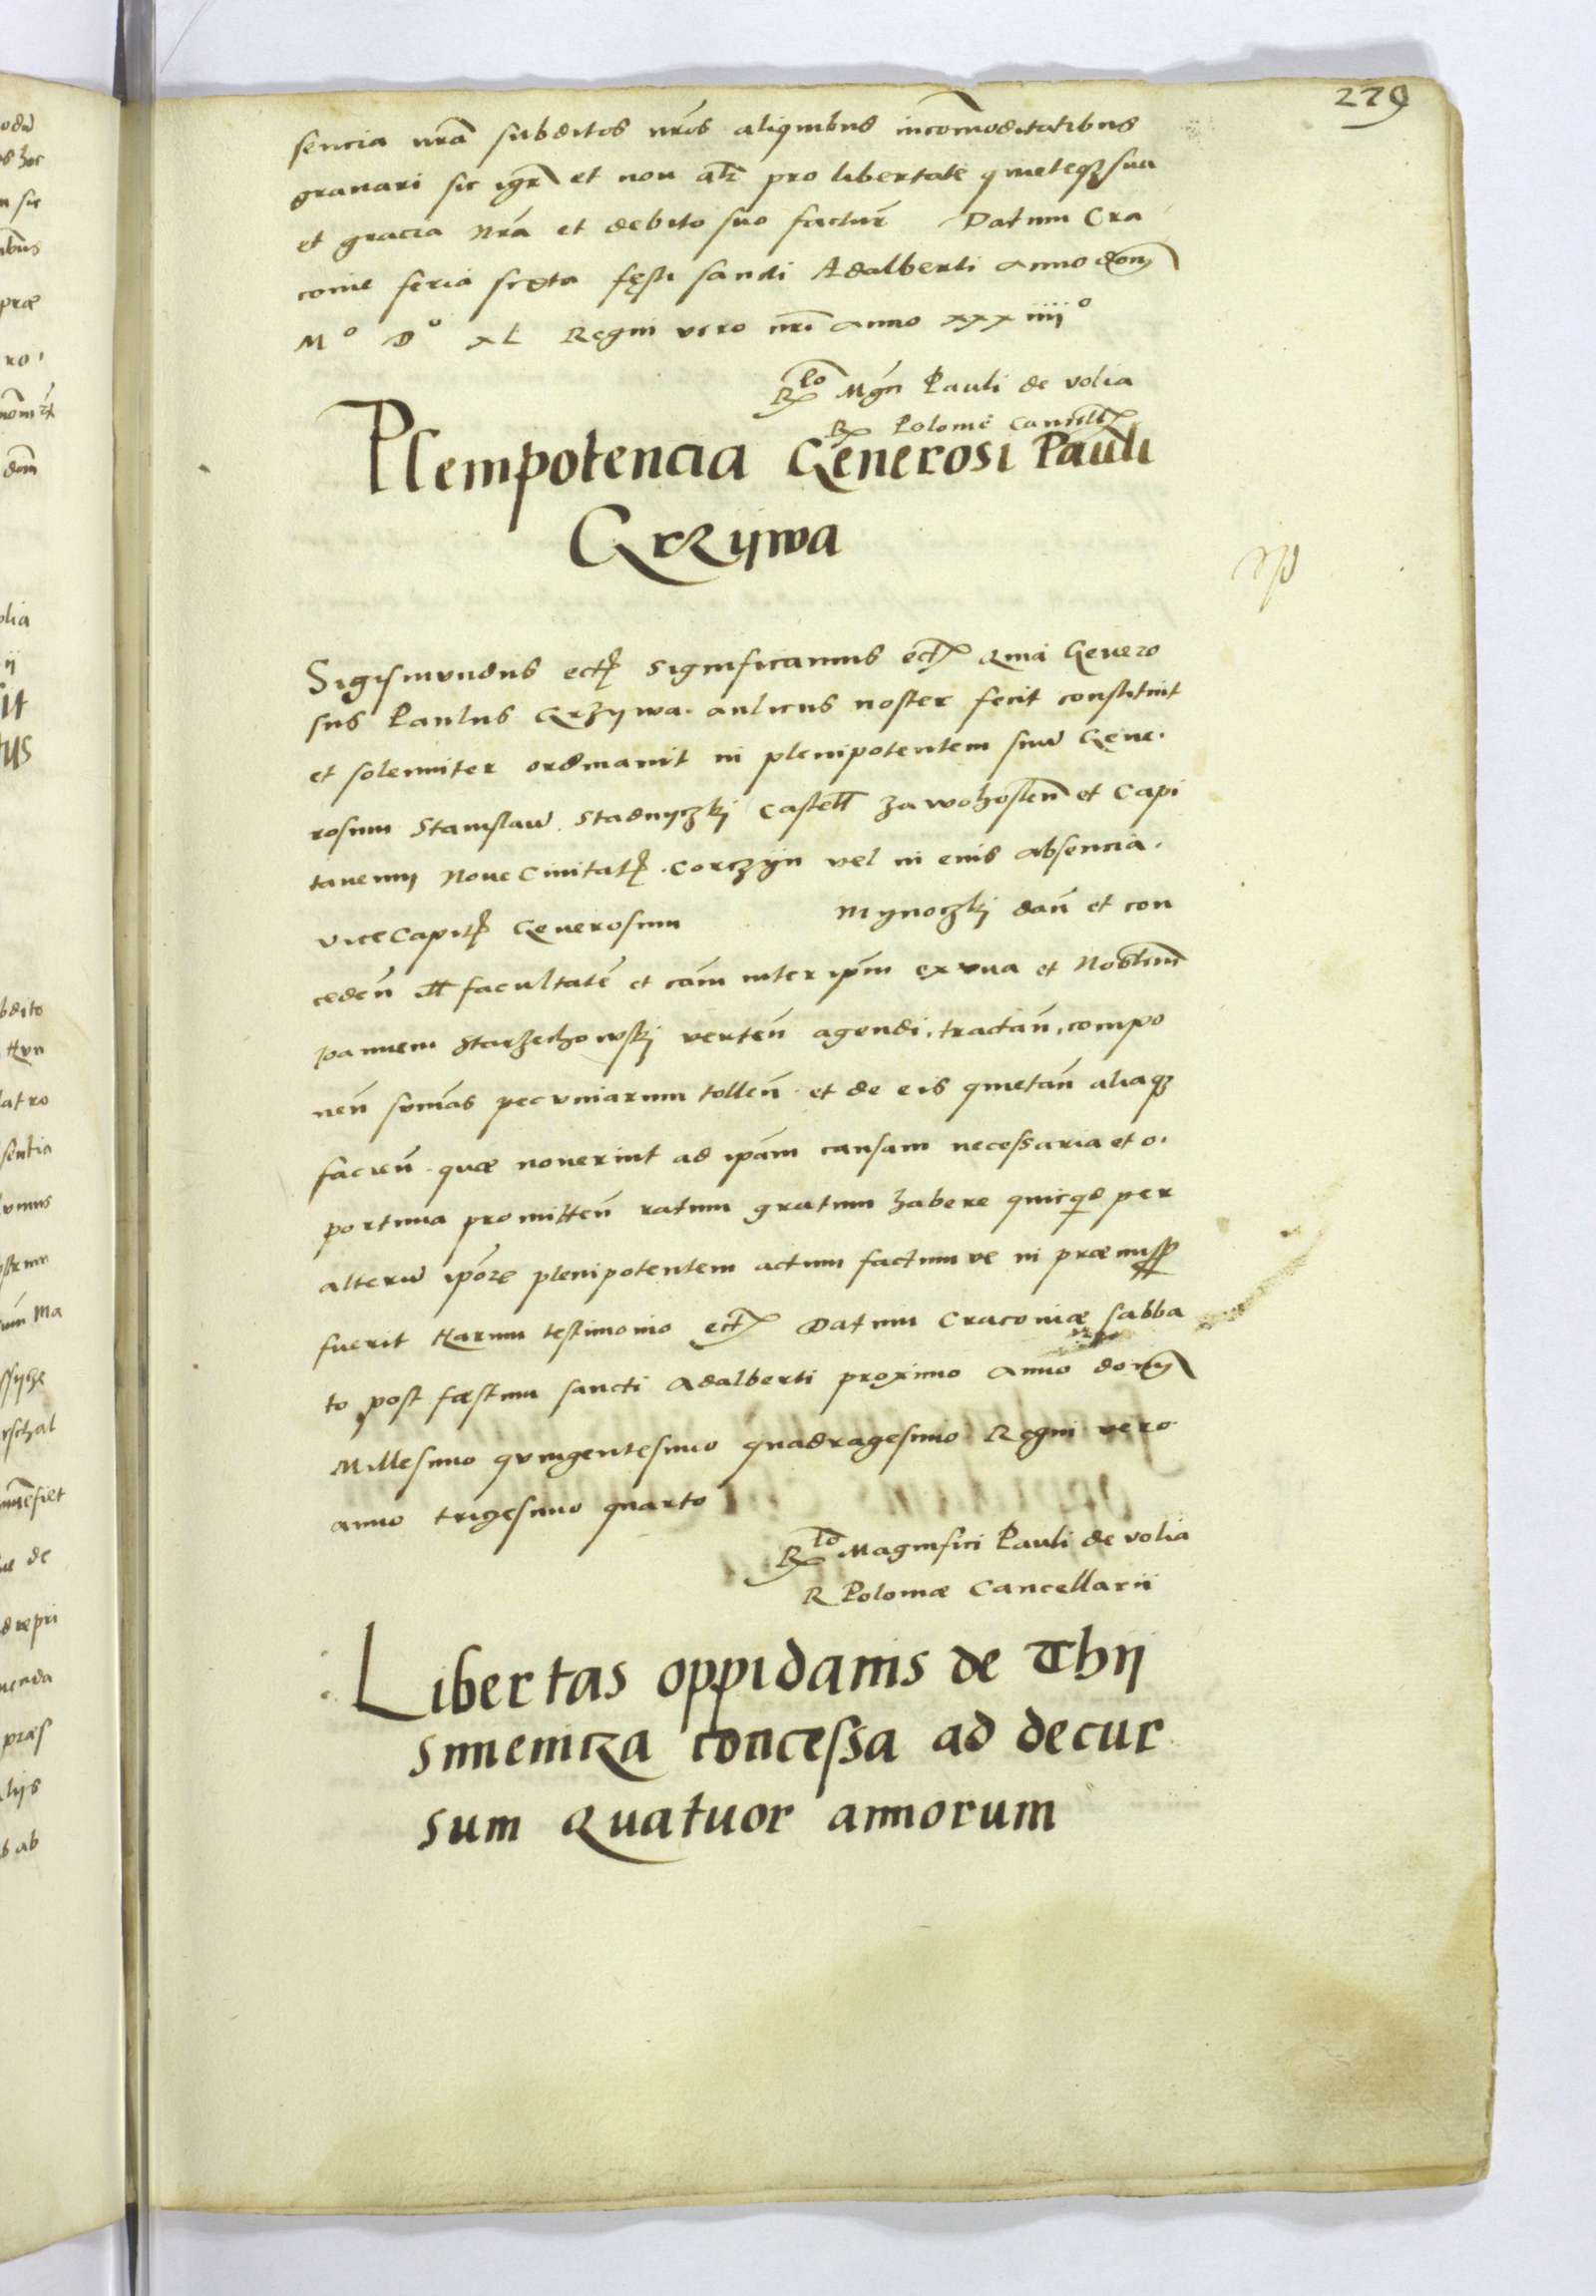 279
sencia nrã subditos nrõs aliquibus incõmoditatibus
gravari sic igr et non alr pro libertate quieteqȝ sua
et gracia Nrã et debito suo factur Datum Cra
covie feria sexta festi sancti Adalberti Anno dom
Mº Dº XL Regni vero nri Anno XXX iiiiº
Rlo Mgn Pauli de volia
R Polonie Cancell
Plenipotencia Generosi Pauli
Grzijwa
Sigismundus ect significamus ect Quia Genero
sus Paulus Grzijwa. aulicus noster fecit constituit
et solenniter ordinavit in plenipotentem suũ Gene.
rosum Stanislaũ Stadnyczkj Castell zawohosten et Capi
taneum Nove Civitat. Corczijn vel in eius absencia.
viceCapit Generosum Mynoczkj dan et con
ceden ill facultatẽ et cãm inter ipm ex una et Nobilem
Joannem Starzechowskj verten agendi. tractan, compo
nen sumas pecuniarum tollen et de eis quietan aliaqȝ
facien. quæ noverint ad ipam causam necessaria et o.
portuna promitten ratum gratum habere quicqd per
alterũ ipor plenipotentem actum factumve in præmiss
fuerit Harum testimonio ect Datum Cracoviæ sabba
to post fæstum sancti Adalberti proximo Anno domj
Millesimo quingentesimo quadragesimo Regni vero
anno trigesimo quarto
Rlo Magnifici Pauli de volia
R Poloniæ Cancellarii
Libertas oppidanis de Thij
smienicza concessa ad decur
sum Quatuor annorum